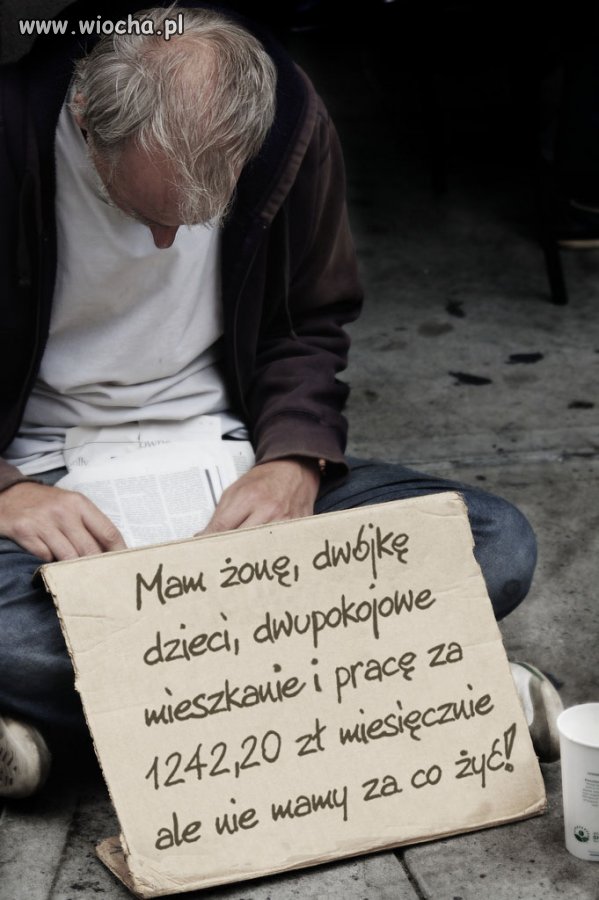 www.wiocha.pl
Mam żonę, dwójkę
dzieci, dwupokojowe
mieszkanie i pracę za
1242,20 zł miesięcznie
ale nie mamy za co żyć!